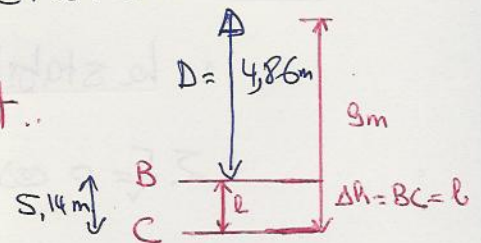 D = 4,86m
t..
9m
B
5,14 m
l
Δh = BC = l
C